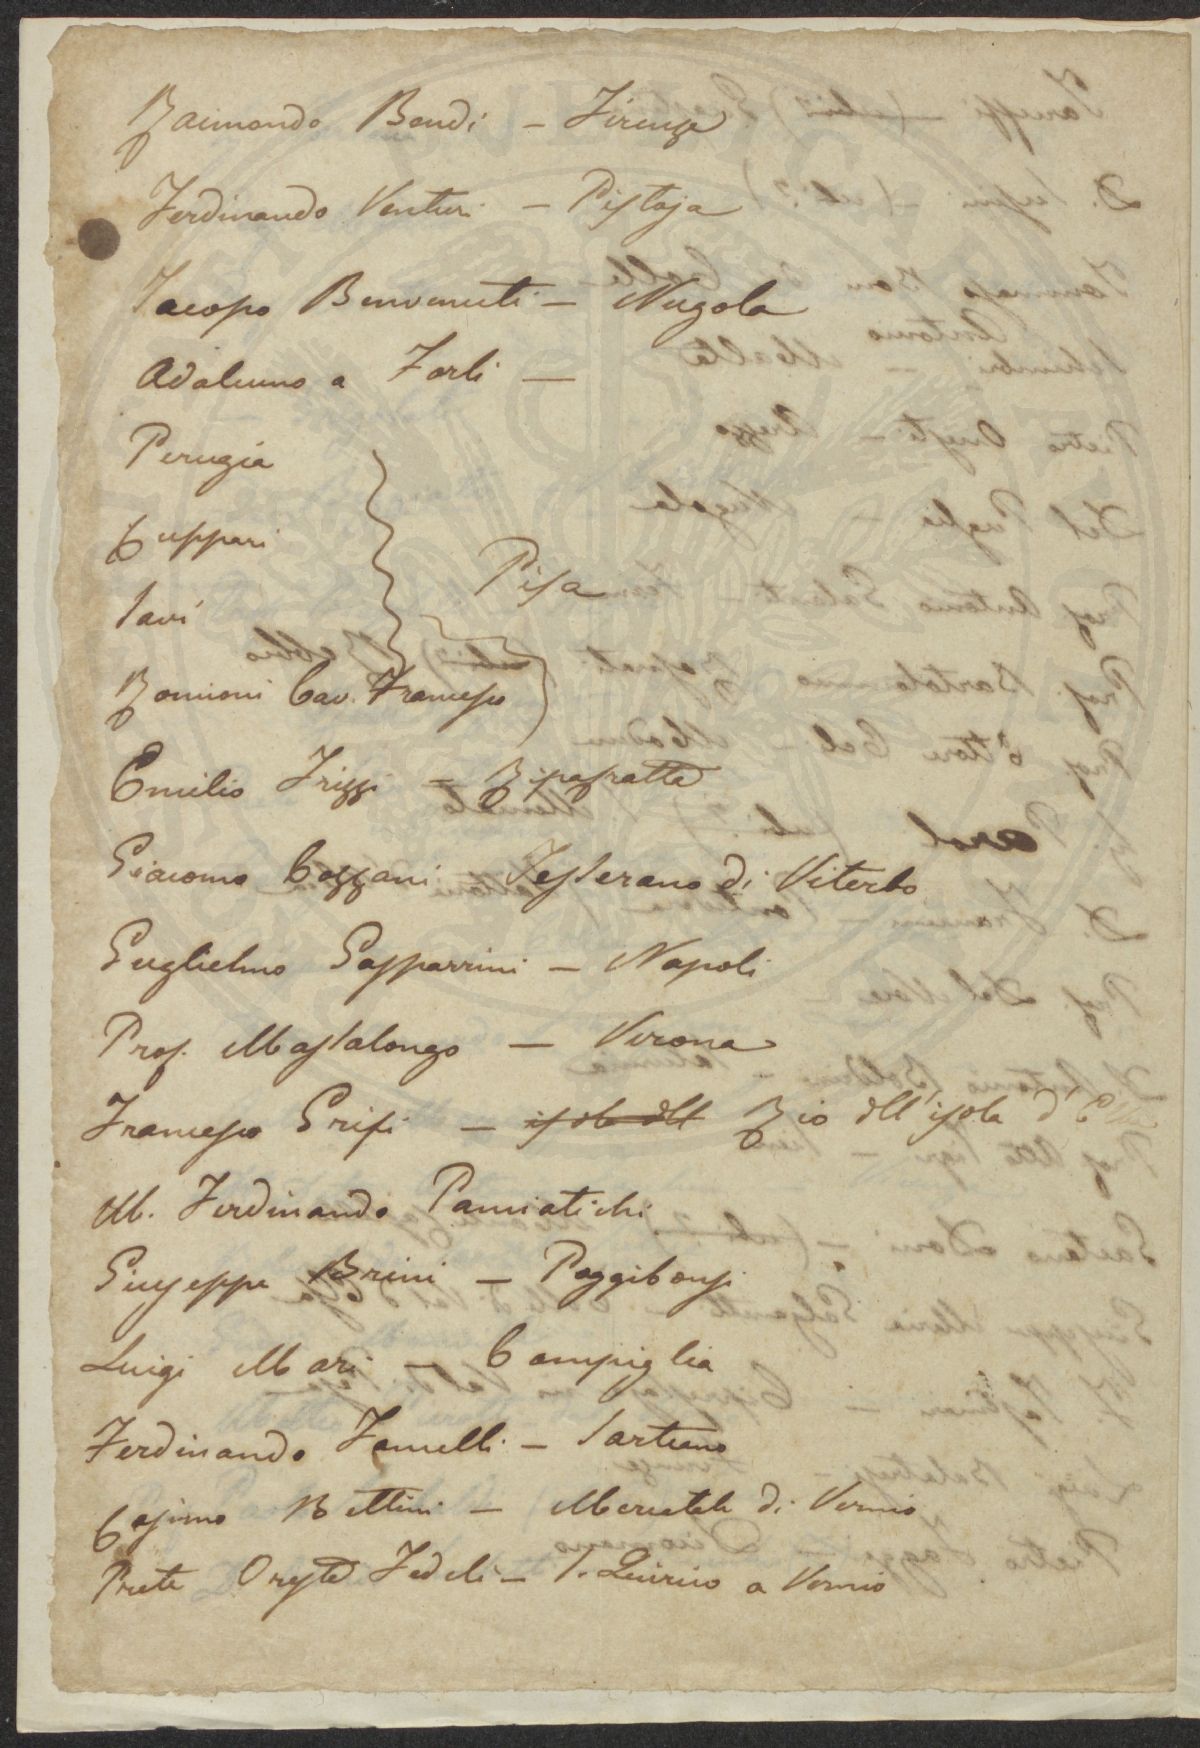 Raimondo Bondi - Firenze
Ferdinando Venturi - Pistoja
Jacopo Benvenuti - Nugola
Adalumo a Forlì -
Perugia
Cuppari
Savi
Pisa
Bonnioni Cav. Francesco
Emilio Frizzi - Ripafratta
Giacomo Cozzani Tesserano di Viterbo
Guglielmo Gasparrini - Napoli
Prof. Massalongo - Verona
Francesco Grifi - isola dell Rio dell'isola d'
M. Ferdinando Panciatichi
Giuseppe Brini - Poggibonsi
Luigi Mari - Campiglia
Ferdinando Fanelli - Sarteano
Cosimo Bettini - Mercatale di Vernio
Prete Oreste Fedeli - S. Quirico a Vernio